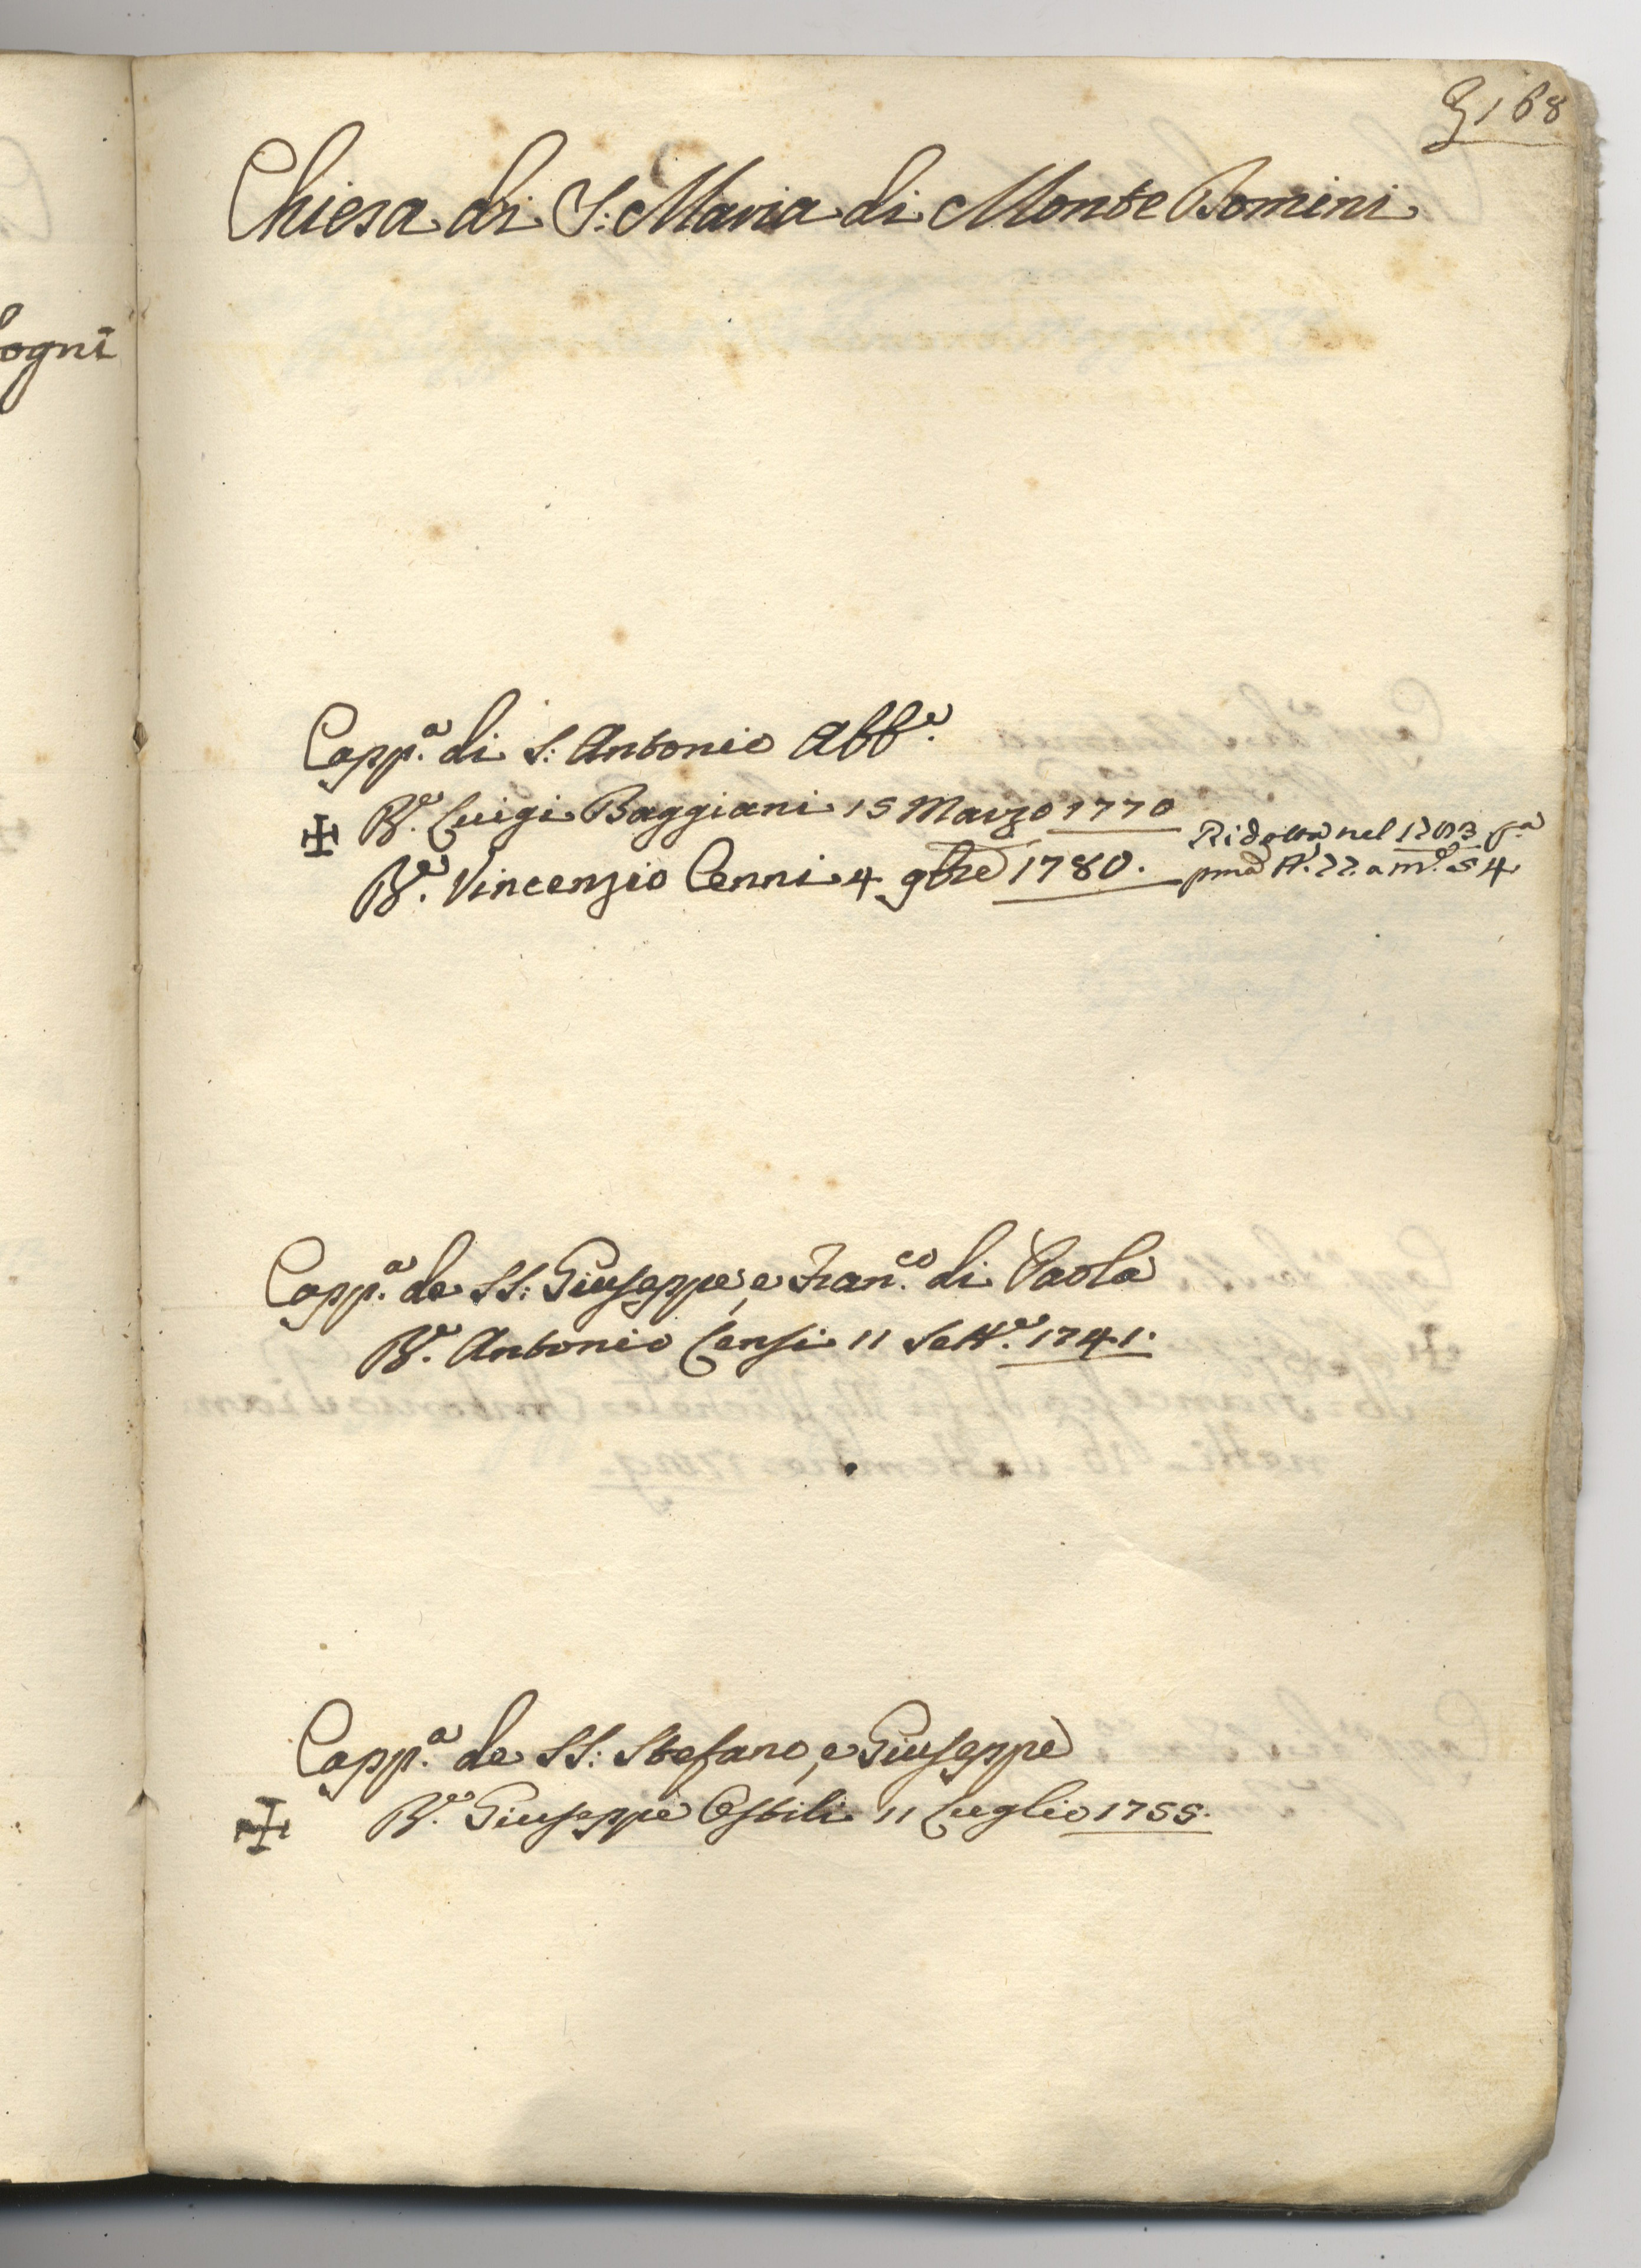 168
Chiesa di S: Maria di Monte Domini
ogni
Capp.a di S: Antonio Abb.e
P.e Luigi Baggiani 15 Marzo 1770
P.e Vincenzio Cenni 4 9bre 1780.
Ridotta nel 1783 p.a
a m. 54
Capp.a de SS: Giuseppe, e Fran.co di Paola
P.e Antonio Censi 11 Sett.e 1741.
Capp.a de SS: Stefano, e Giuseppe
P.e Giuseppe 11 Luglio 1755.